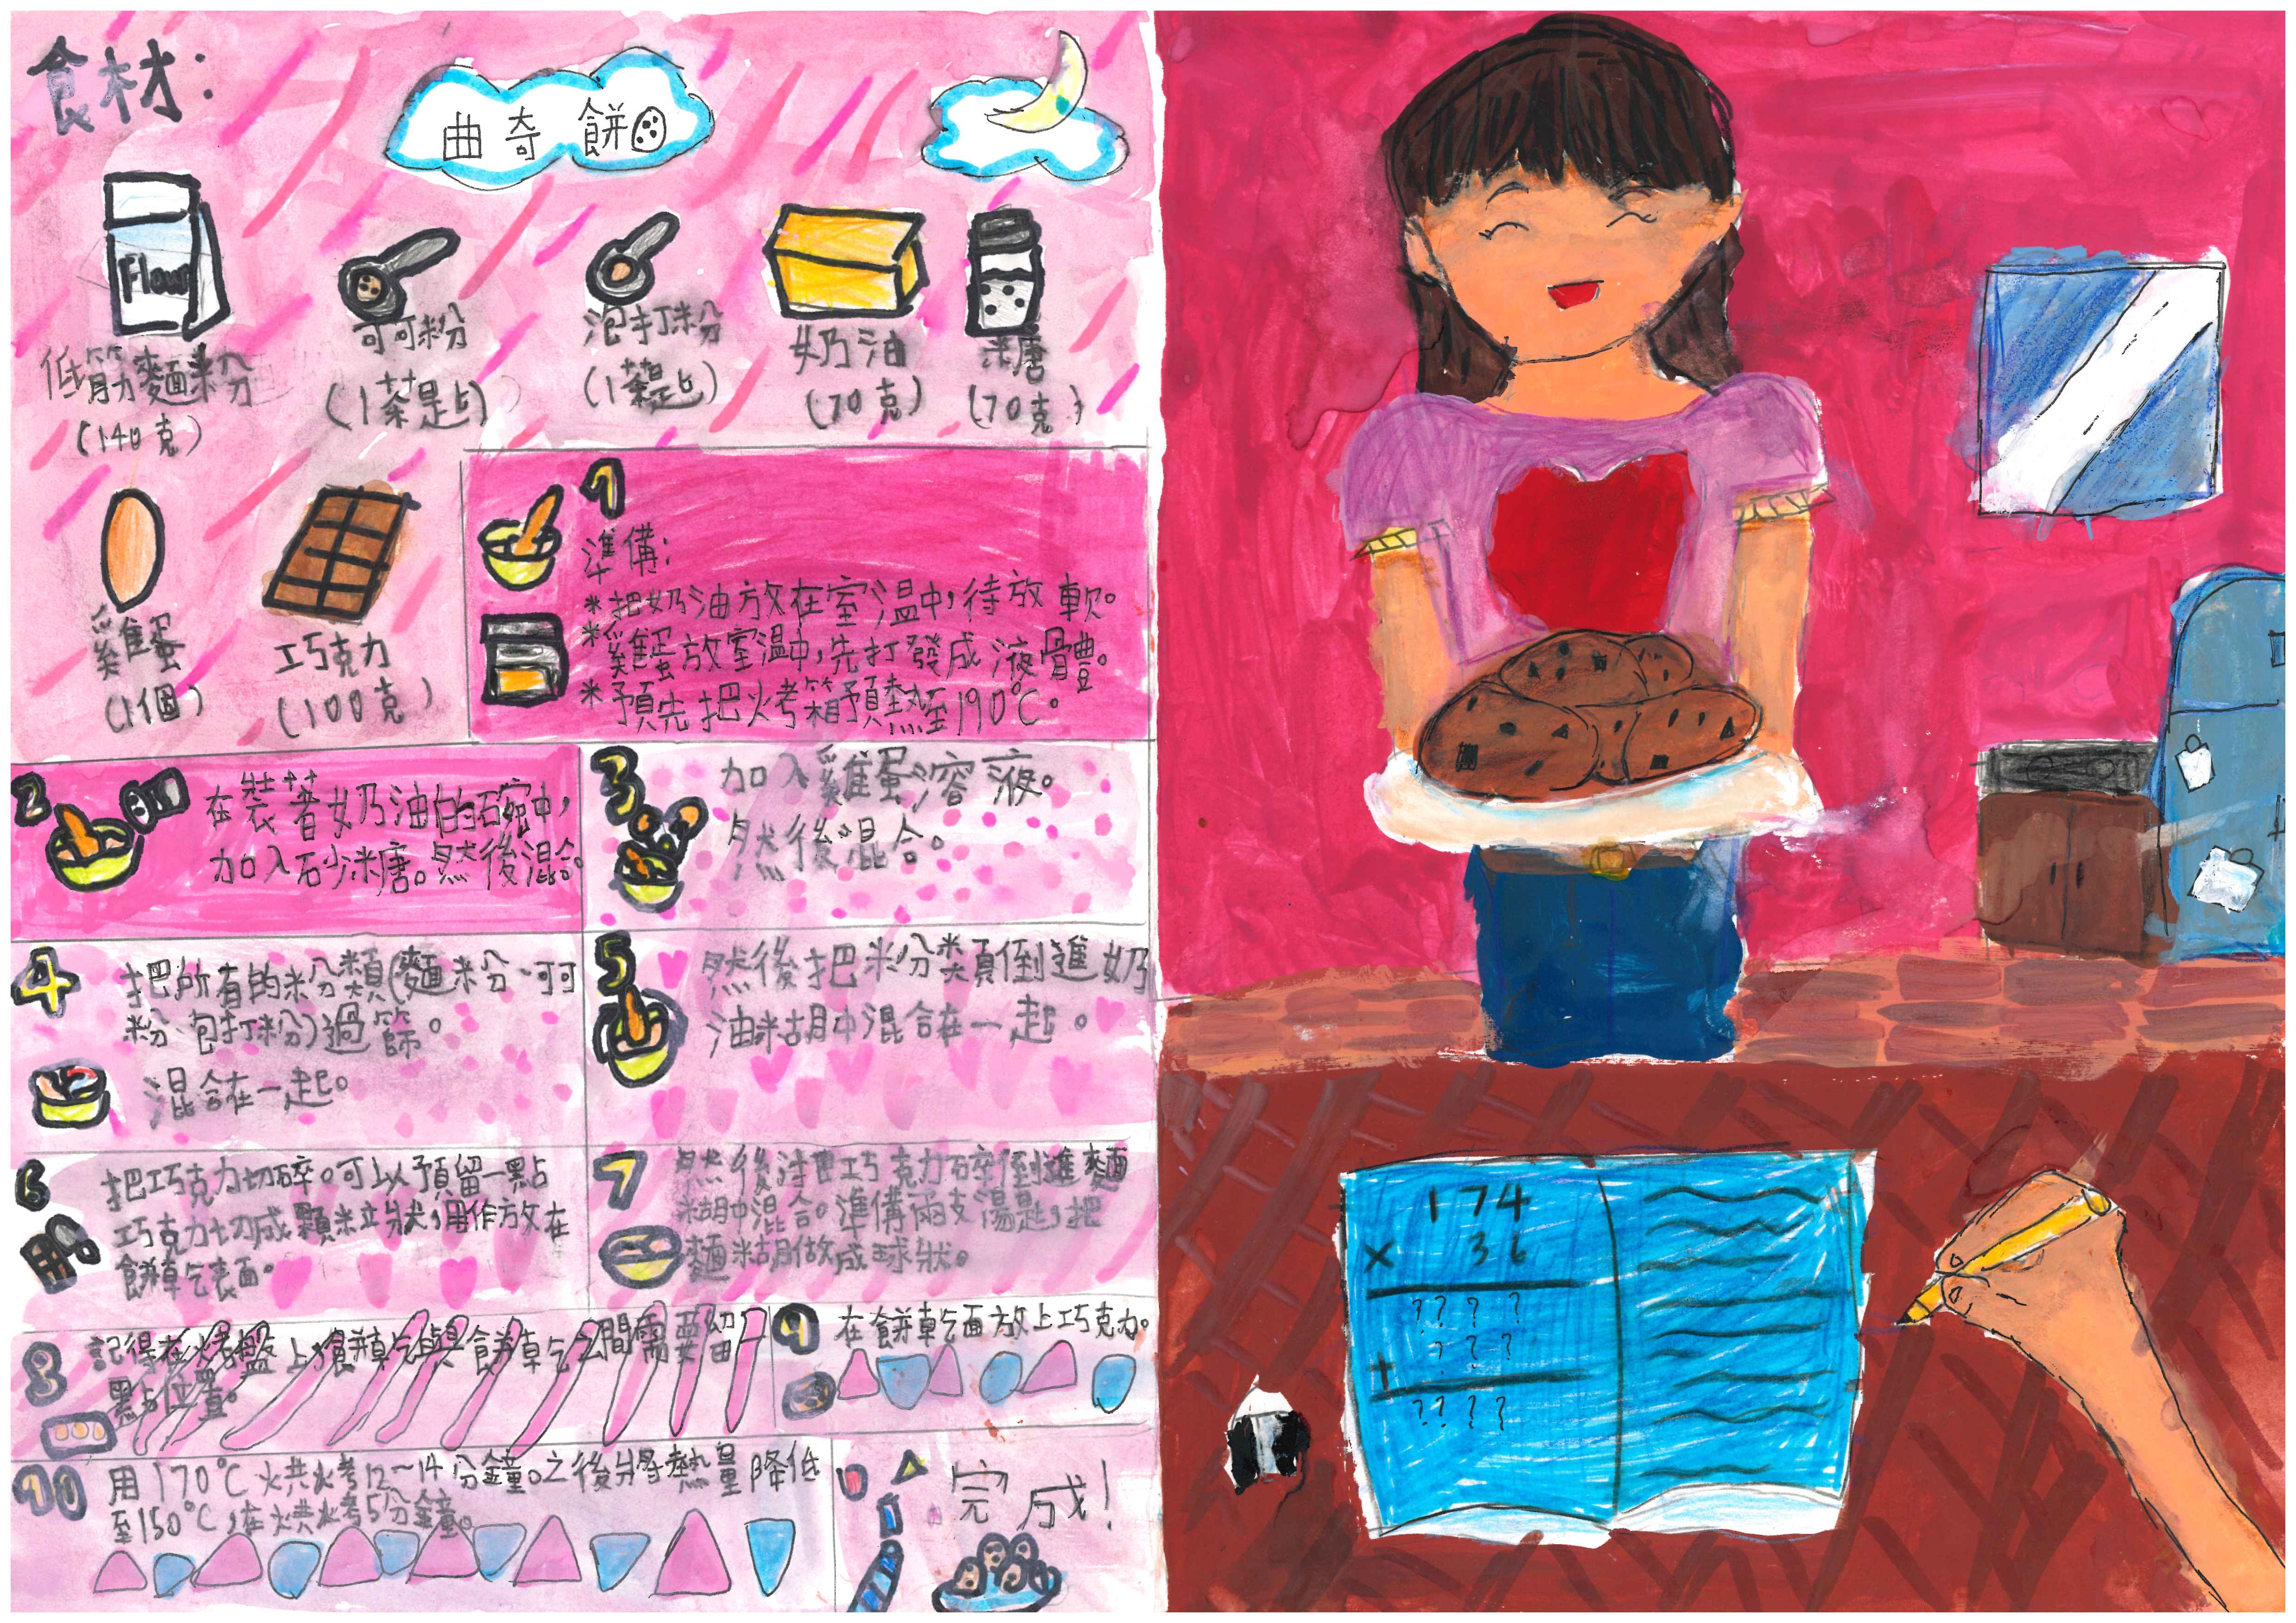 食材：
曲奇餅
Flour
低筋麵粉
(140克)
可可粉
(1茶匙)
泡打粉
(1茶匙)
奶油
(70克)
糖
(70克)
雞蛋
(1個)
巧克力
(100克)
1
準備：
*把奶油放在室溫中，待放軟。
*雞蛋放室溫中，先打發成液體。
*預先把烤箱預熱至190°C。
2
在裝著奶油的碗中，
加入砂糖。然後混合。
3
加入雞蛋溶液。
然後混合。
4
把所有的粉類(麵粉、可可
粉、包打粉)過篩。
混合在一起。
5
然後把粉类頁倒進奶
油糊中混合在一起。
6
把巧克力切碎。可以預留一點
巧克力切成顆粒狀，用作放在
餅乾表面。
7
然後把巧克力碎倒進麵
糊中混合。準備兩支湯匙，把
麵糊做成球狀。
8
記得在烤盤上，餅乾與餅乾之間需要留
點位置。
9
在餅乾面放上巧克力。
10
用170°C烘烤12~14分鐘。之後將熱量降低
至150°C，在烘烤5分鐘。
完成！
174
× 36
? ? ? ?
+ ? ? ?
? ? ? ?